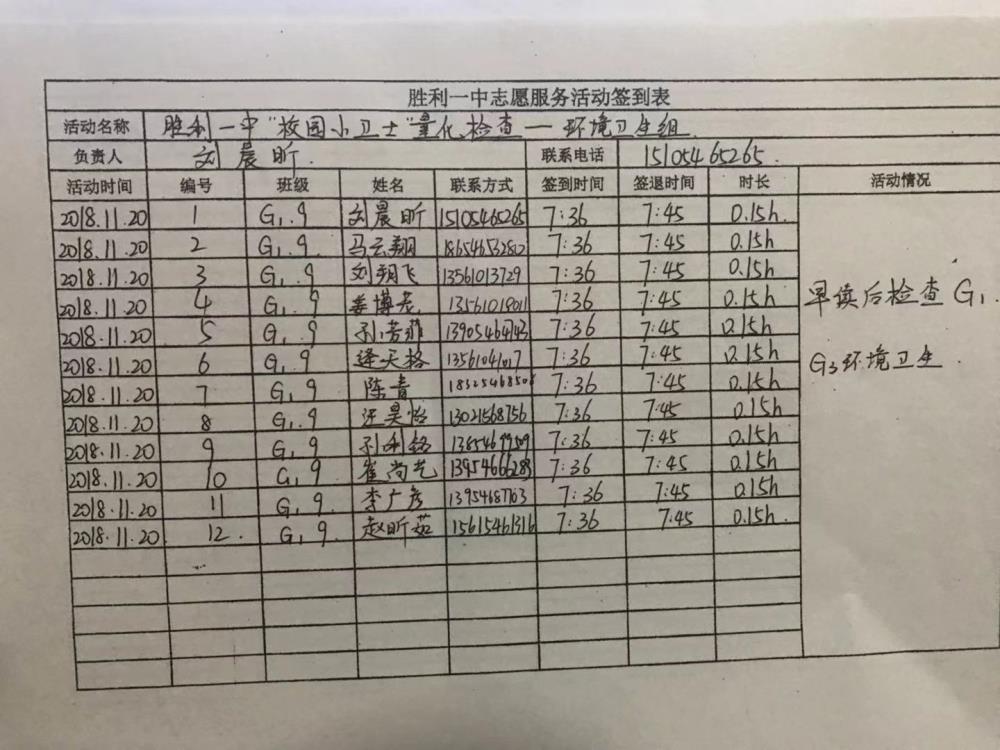 胜利一中志愿服务活动签到表
活动名称 胜利一中"校园小卫士"量化检查—环境卫生组
负责人 刘晨昕. 联系电话 15105465265.
活动时间 编号 班级 姓名 联系方式 签到时间 签退时间 时长 活动情况
2018.11.20 1 G1.9 刘晨昕 15105465265 7:36 7:45 0.15h.
2018.11.20 2 G1.9 马云翔 18654653280 7:36 7:45 0.15h
2018.11.20 3 G1.9 刘翔飞 13561013729 7:36 7:45 0.15h
2018.11.20 4 G1.9 姜博 13561019011 7:36 7:45 0.15h
2018.11.20 5 G1.9 孙芳菲 13905464143 7:36 7:45 0.15h
2018.11.20 6 G1.9 逄天格 7:36 7:45 0.15h
2018.11.20 7 G1.9 陈青 7:36 7:45 0.15h
2018.11.20 8 G1.9 汪昊怡 13021568756 7:36 7:45 0.15h
2018.11.20 9 G1.9 7:36 7:45 0.15h
2018.11.20 10 G1.9 崔尚艺 13954666283 7:36 7:45 0.15h
2018.11.20 11 G1.9 李广彦 13954687763 7:36 7:45 0.15h
2018.11.20 12. G1.9. 赵昕茹 15615461316 7:36 7:45 0.15h.
早读后检查G1.
G3环境卫生.